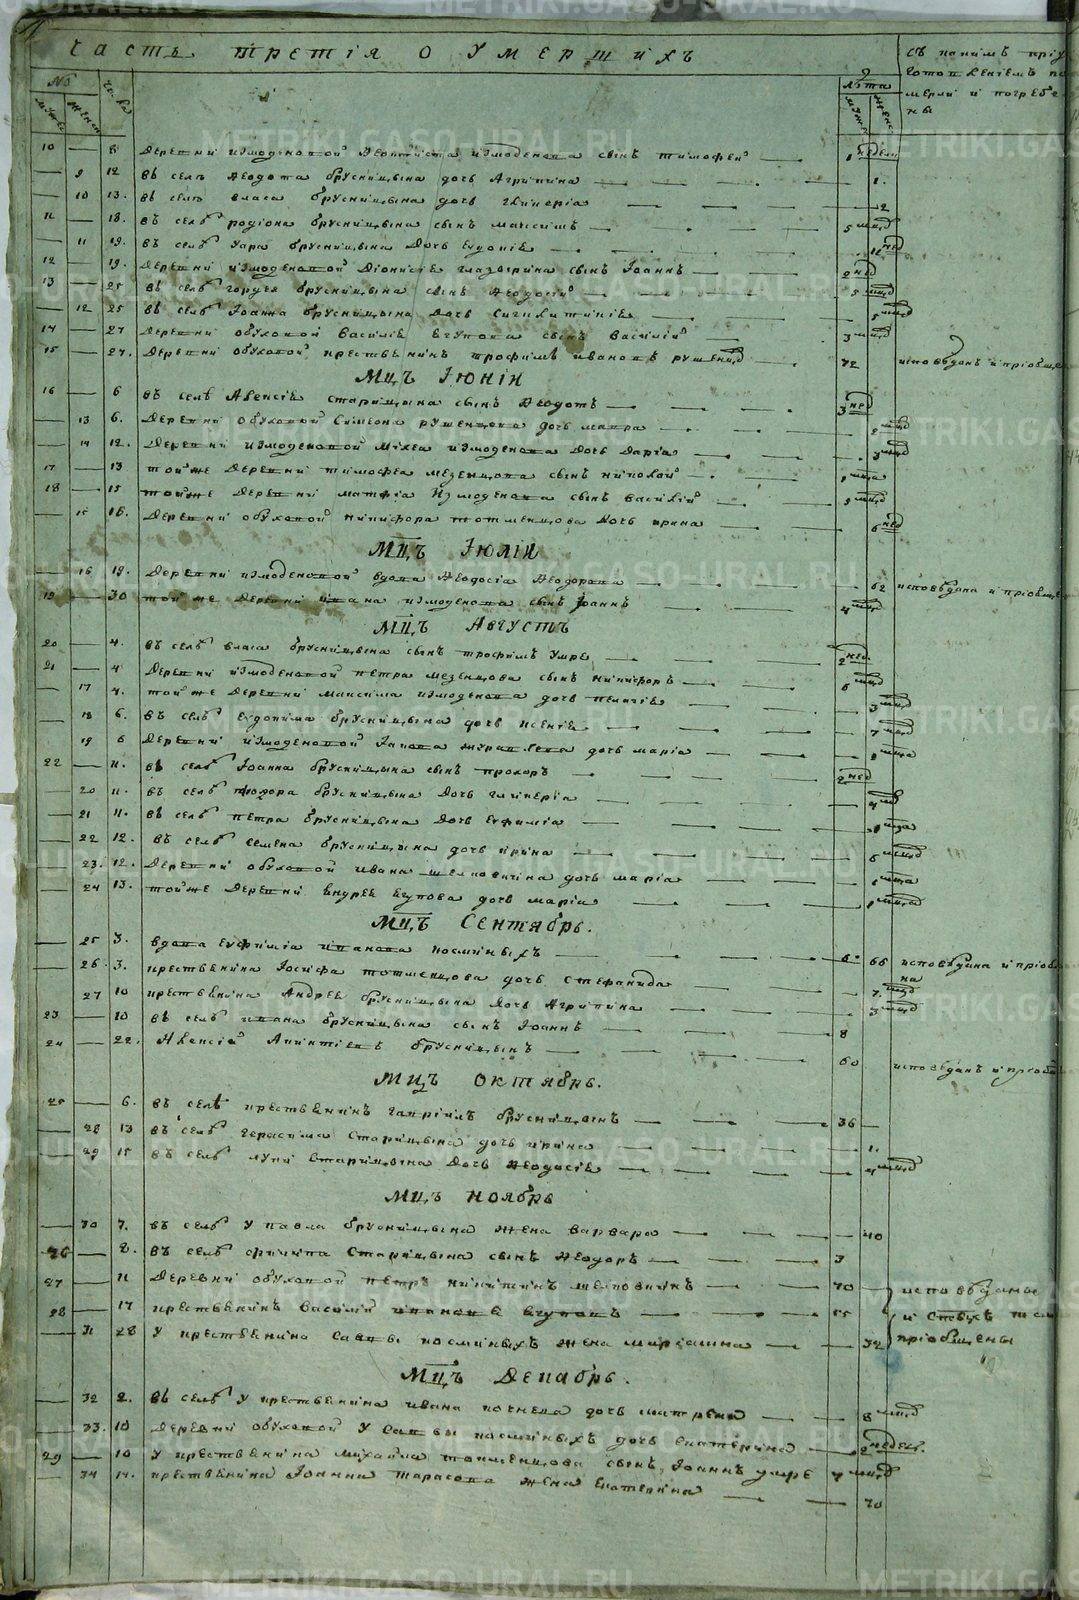 Часть третія о умершихъ
съ какимъ пріуготовленіемъ померли и погребены
№
мужес женск
числа
лѣта
мужес женс
10 — 8 Деревни измоденовой измоденова сынъ тимофей — 1 недели
— 9 12 въ селѣ Ѳеодота брусницына дочь Агрипина — 1.
— 10 13. въ селѣ власа брусницына дочь гликерія — 2
11 — 18. въ селѣ родіона брусницына сынъ максимъ — 5 мцд
— 11 19. въ селѣ уара брусницына дочь евдокіѣ — нед
12 — 19. Деревни измоденовой Діонисіѣ глазырина сынъ Іоаннъ — 2 нед
13 — 25 въ селѣ гордея брусницына сынъ Ѳеодосій — 5 мцд
— 12 25 въ селѣ Іоанна брусницына дочь — 5 мцд
14 — 27 Деревни обуховой василіѣ егупова сынъ василій — 3 мцд
15 — 27. Деревни обуховой крестьенинъ трофимъ ивановъ рушенцд — 72 исповѣданъ и пріобще
Мцъ Іюніи
16 — 6 въ селѣ Алексіѣ старицына сынъ Ѳеодотъ — 3 нед
— 13 6. Деревни обуховой Симеона рушенцова дочь мавра — 2 мцд
— 14 12. Деревни измоденовой міхея измоденова дочь Дарія — 3 мцд
17 — 13 тойже Деревни тимофея мезенцова сынъ николай — 1 мцца
18 — 15 тойже Деревни матфіа Измоденова сынъ василій — 9 мцд
— 15 16. Деревни обуховой никифора тотменцова дочь ирина — 6 нед
Мцъ Іюліи
— 16 19. Деревни измоденовой вдова Ѳеодосіа Ѳеодорова — 62 исповѣдана и пріобще
19 — 30 той же Деревни ивана измоденова сынъ Іоаннъ — 4 мцд
Мцъ Августъ
20 — 4. въ селѣ власа брусницына сынъ трофимъ умре — 2 нед.
21 — 4 Деревни измоденовой петра мезенцова сынъ никифоръ — 6 мцд
— 17 4. тойже Деревни максима измоденова дочь пелагіѣ — 3 мцд
— 18 6. въ селѣ евдокима брусницына дочь ксеніѣ — 7 мцд
— 19 6 Деревни измоденовой Іакова журавлева дочь маріа — 2 мцца
22 — 11. въ селѣ Іоанна брусницына сынъ прохоръ — 2 нед
— 20 11. въ селѣ брусницына дочь гликеріа — 4 мцд
— 21 11. въ селѣ петра брусницына дочь Еуфиміа — 1 мцца
— 22 12. въ селѣ семена брусницына дочь ирина — 6 мцд
— 23. 12. Деревни обуховой ивана шелковкина дочь маріа — 1 мцца
— 24 13. тойже Деревни Андрея егупова дочь маріа — 1 мцца
Мцъ Сентябрь.
— 25 3. вдова Еуфиміа иванова косминыхъ — 66 исповѣдана и пріобщена
— 26. 3. крестьенина Іосифа тотменцова дочь стефанида — 7. мцд
— 27 10 крестьенина Андреѣ брусницына дочь Агрипина — 3 мцд
23 — 10 въ селѣ ивана брусницына сынъ Іоаннъ — 8
24 — 22. Алексій брусницынъ — 60 исповѣданъ и пріобщ
Мцъ Октябрь.
25 — 6. въ селѣ крестьенинъ гавріилъ брусницынъ — 36 —
— 28 13 въ селѣ герасима старицына дочь ирина — 1.
— 29 15 въ селѣ луки старицына дочь Ѳеодосіѣ — 4 мцд
Мцъ ноябрь
— 30 7. въ селѣ у павла брусницына жена варвара — 40
26 — 8. въ селѣ филипа старицына сынъ Ѳеодоръ — 3
27 — 11 Деревни обуховой петръ никитинъ шелковкинъ — 70 — исповѣданы
28 — 17 крестьенинъ василій ивановъ егуповъ — 55 и
— 31 28 у крестьенина саввы косминыхъ жена маріамна — 32 пріобщены
Мцъ Декабрь.
— 32 2. въ селѣ у крестьенина ивана дочь матрена — 8 мцд
— 33. 10 Деревни обуховой у саввы косминыхъ дочь екатерина — 2 недел.
29 — 10 у крестьенина михайла тотменцова сынъ Іоаннъ умре 4 мцд
— 34 14. крестьенина Іоанна тарасова жена екатерина — 70
METRIKI.GASO-URAL.RU